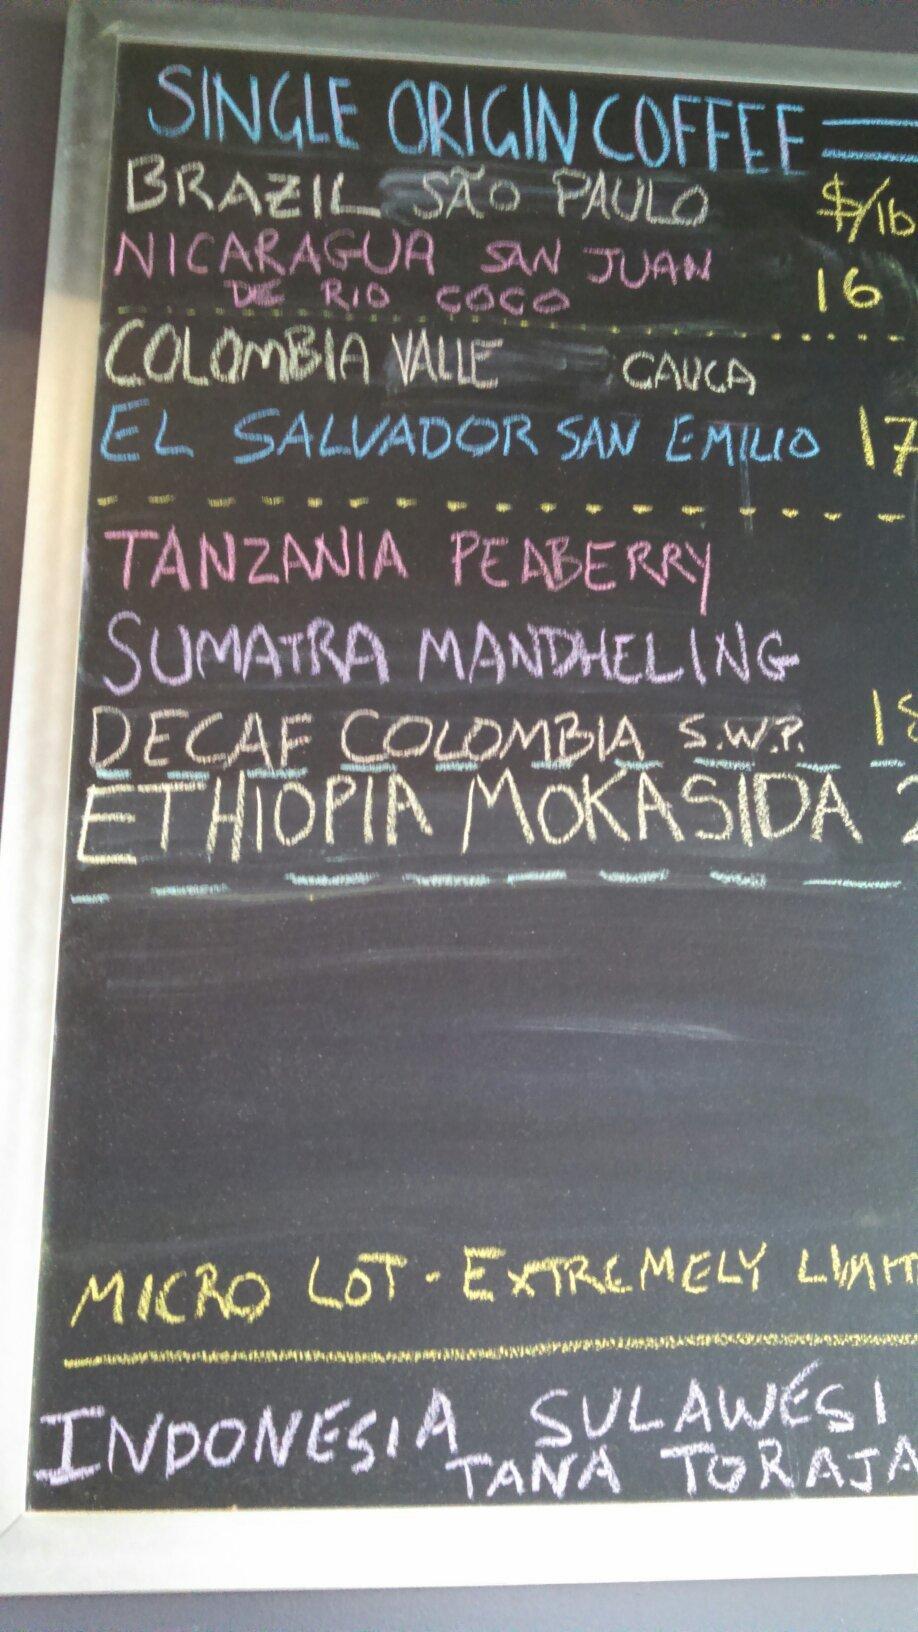 SINGLE ORIGIN COFFEE
BRAZIL SÃO PAULO $/lb
NICARAGUA SAN JUAN 16
DE RIO COCO
COLOMBIA VALLE CAUCA
EL SALVADOR SAN EMILIO 17
TANZANIA PEABERRY
SUMATRA MANDHELING
DECAF COLOMBIA S.W.P. 18
ETHIOPIA MOKASIDA 2
MICRO LOT - EXTREMELY LIMIT
INDONESIA SULAWESI
TANA TORAJA